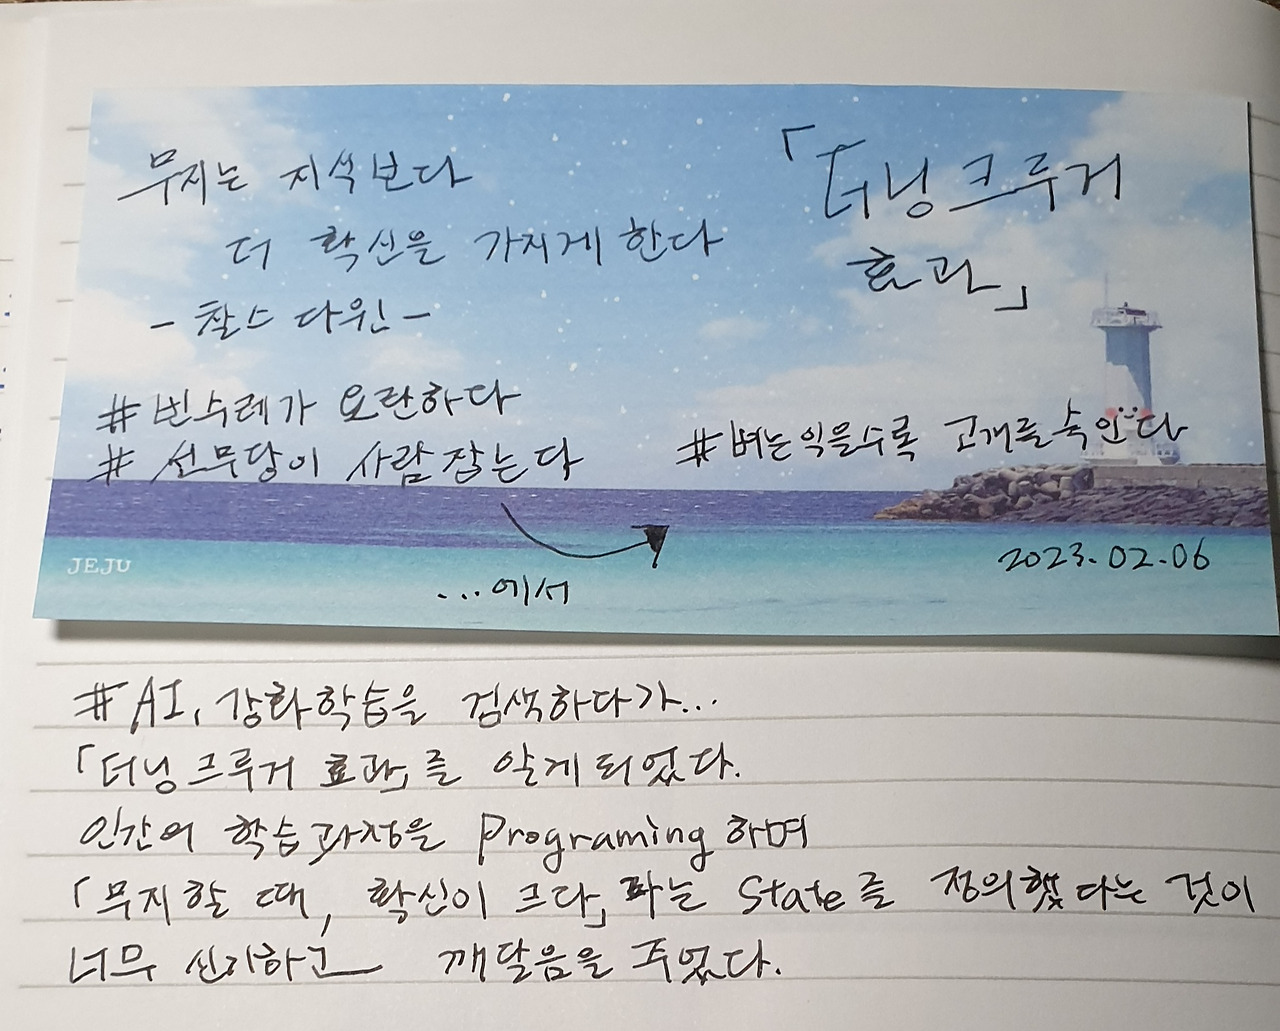 무지는 지식보다
더 확신을 가지게 한다
- 찰스 다윈 -
「더닝 크루거
효과」
#빈수레가 요란하다
# 선무당이 사람 잡는다
#벼는 익을수록 고개를 숙인다
...에서
2023.02.06
JEJU
#AI, 강화학습을 검색하다가...
「더닝 크루거 효과」를 알게 되었다.
인간의 학습과정을 Programing 하며
「무지할 때, 확신이 크다」라는 State를 정의했다는 것이
너무 신기하고 깨달음을 주었다.